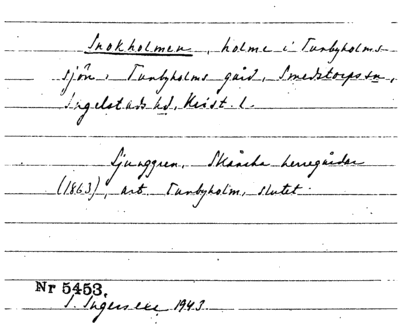 Snokholmen, holme i Tunbyholms-
sjön, Tunbyholms gård, Smedstorps sn,
Ingelstads hd, Krist. l.
Sjunggren, Skånska herregårdar
(1863), art. Tunbyholm, slutet.
Nr 5453.
I. Ingers 1943.